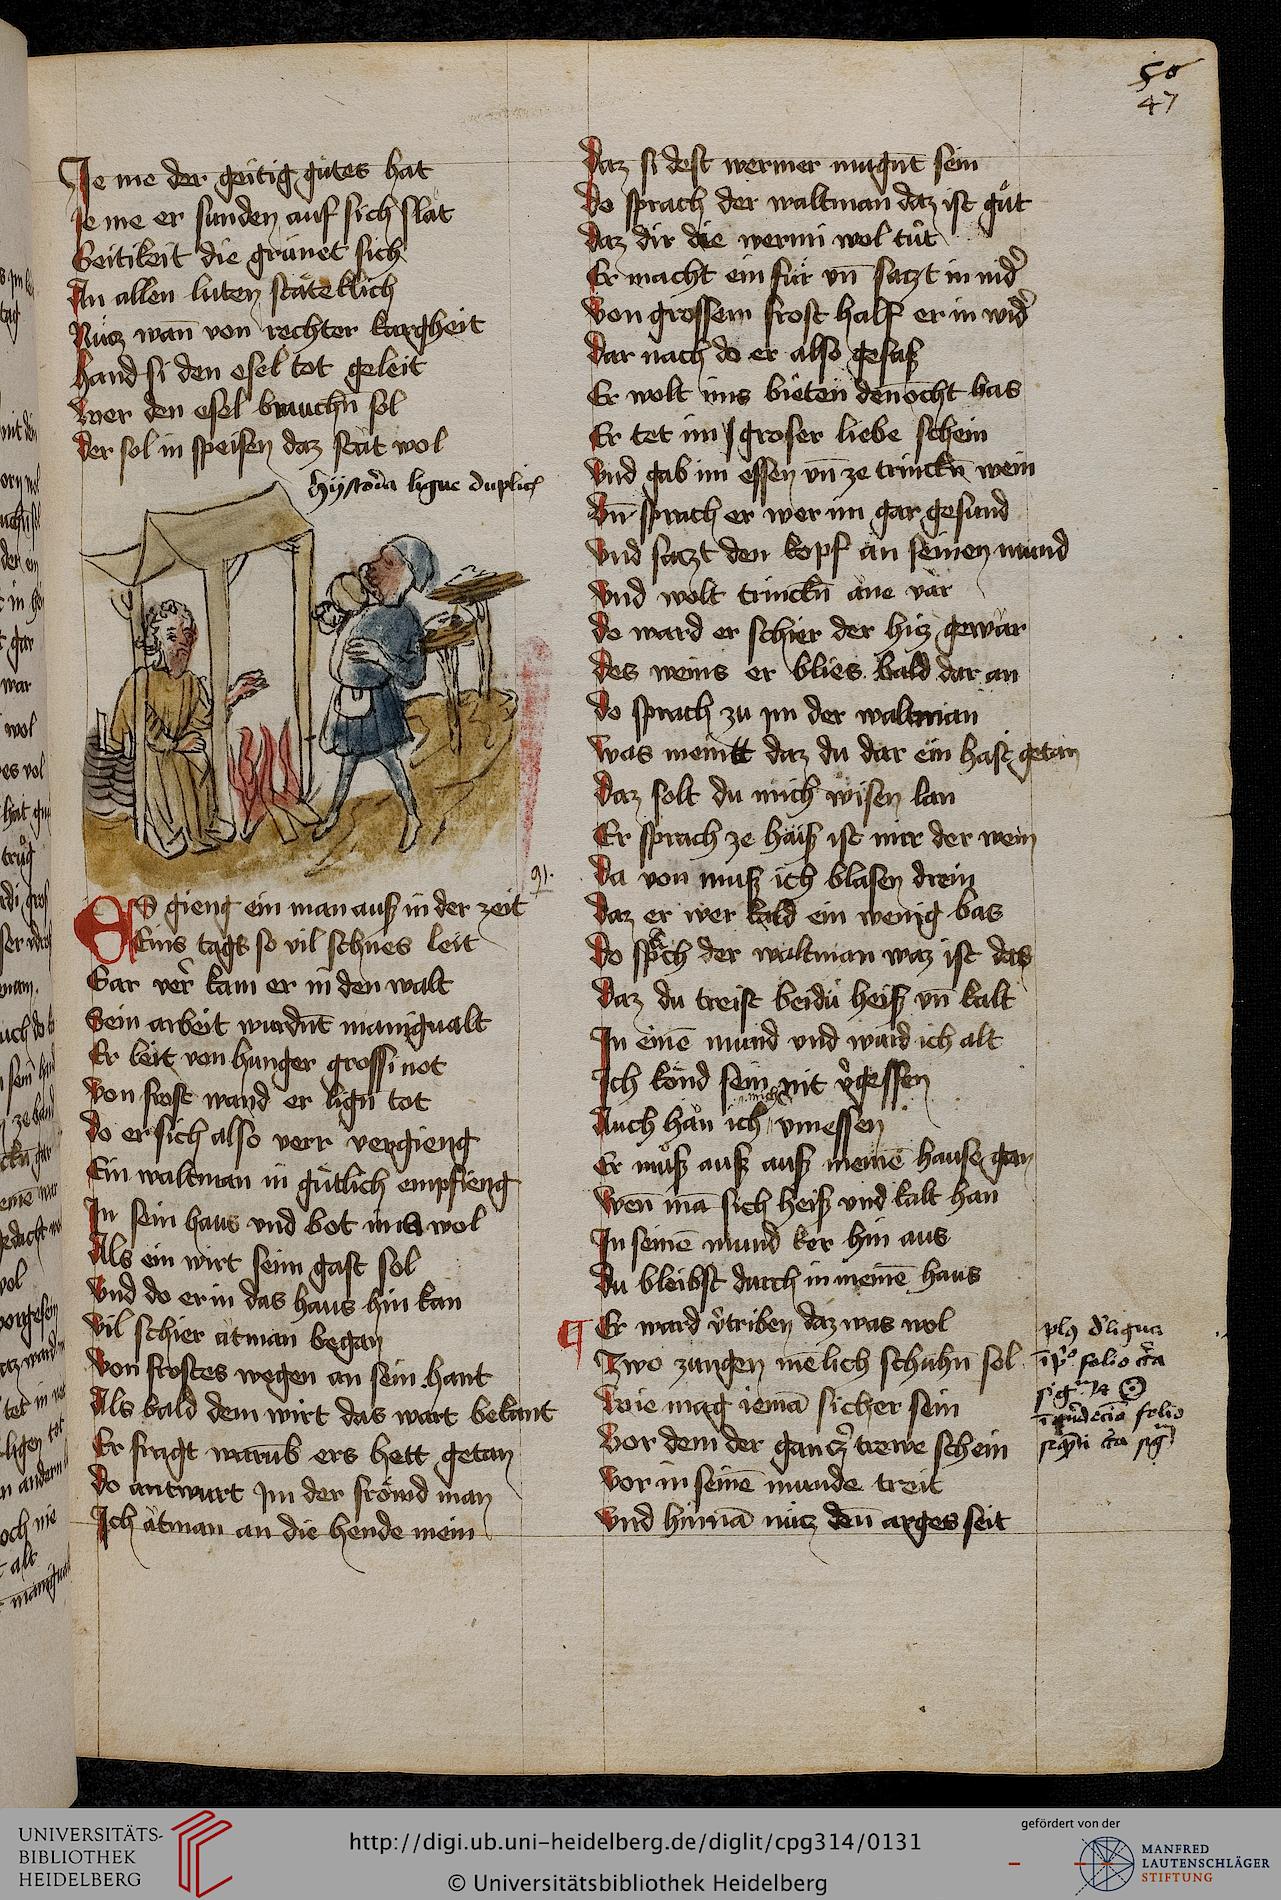 50
47
Je me der geitig gutes hat
Je me er sunden auf sich slat
Geitikeit die grunet sich
An allen luten stäteklich
Nutz wan̄ von rechter kargheit
Hand si den esel tot geleit
Wer den esel bruuchn̄ sol
Der sol in speisen daz stat wol
Hystoria ligue duplicis
91.
ES gieng ein man ausz in der zeit
Eins tags so vil schnes leit
Gar ver kam er in den walt
Sein arbeit wurdn̄t manigualt
Er leit von hunger grossi not
Von frost wand er lign̄ tot
Do er sich also verr vergieng
Ein waltman in gütlich empfieng
In sein haus vnd bot ims wol
Als ein wirt seim gast sol
Vnd do er in das haus hin kan
Vil schier ätman began
Von frostes wegen an sein hant
Als bald dem wirt das wart bekant
Er fragt warūb ers hett getan
Do antwurt Im der frömd man
Ich ätman an die hende mein
Daz si dest wermer mugn̄t sein
Do sprach der waltman daz ist gůt
Daz dir die wermi wol tůt
Er macht ein für vn̄ satzt in nid̄
Von grossem frost half er in wid̄
Dar nach do er also gesasz
Er wolt ims bieten den̄ocht bas
Er tet im groser liebe schein
Vnd gab im essen vn̄ ze trinckn̄ wein
Vn̄ sprach er wer im gar gesund
Vnd satzt den kopf an seinen mund
Vnd wolt trinckn̄ ane var
Do ward er schier der hitz gewar
Des weins er blies bald dar an
Do sprach zu im der waltman
Was meintt daz du dar ein hast getan
Daz solt du mich wisen lan
Er sprach ze häisz ist mir der wein
Da von musz ich blasen drein
Daz er wer kald ein wenig bas
Do sprach der waltman waz ist das
Daz du treist beidü heisz vn̄ kalt
In einē mund vnd ward ich alt
Ich könd sein nit v̄gessen
Auch han ich mich vmessen
Er můsz ausz ausz meinē hause gan
Wen̄ mā sich heisz vnd kalt han
In seinē mund ker hin aus
Du bleibst durch in meinē haus
Er ward v̄triben daz was wol
Zwo zungen mēlich schuhn̄ sol
Wie mag iemā sicher sein
Vor dem der gantz̄ trewe schein
Vor in seinē munde treit
Vnd hinnā nütz den̄ arges seit
folio
folio
UNIVERSITÄTS-
BIBLIOTHEK
HEIDELBERG
http://digi.ub.uni-heidelberg.de/diglit/cpg314/0131
© Universitätsbibliothek Heidelberg
gefördert von der
MANFRED
LAUTENSCHLÄGER
STIFTUNG